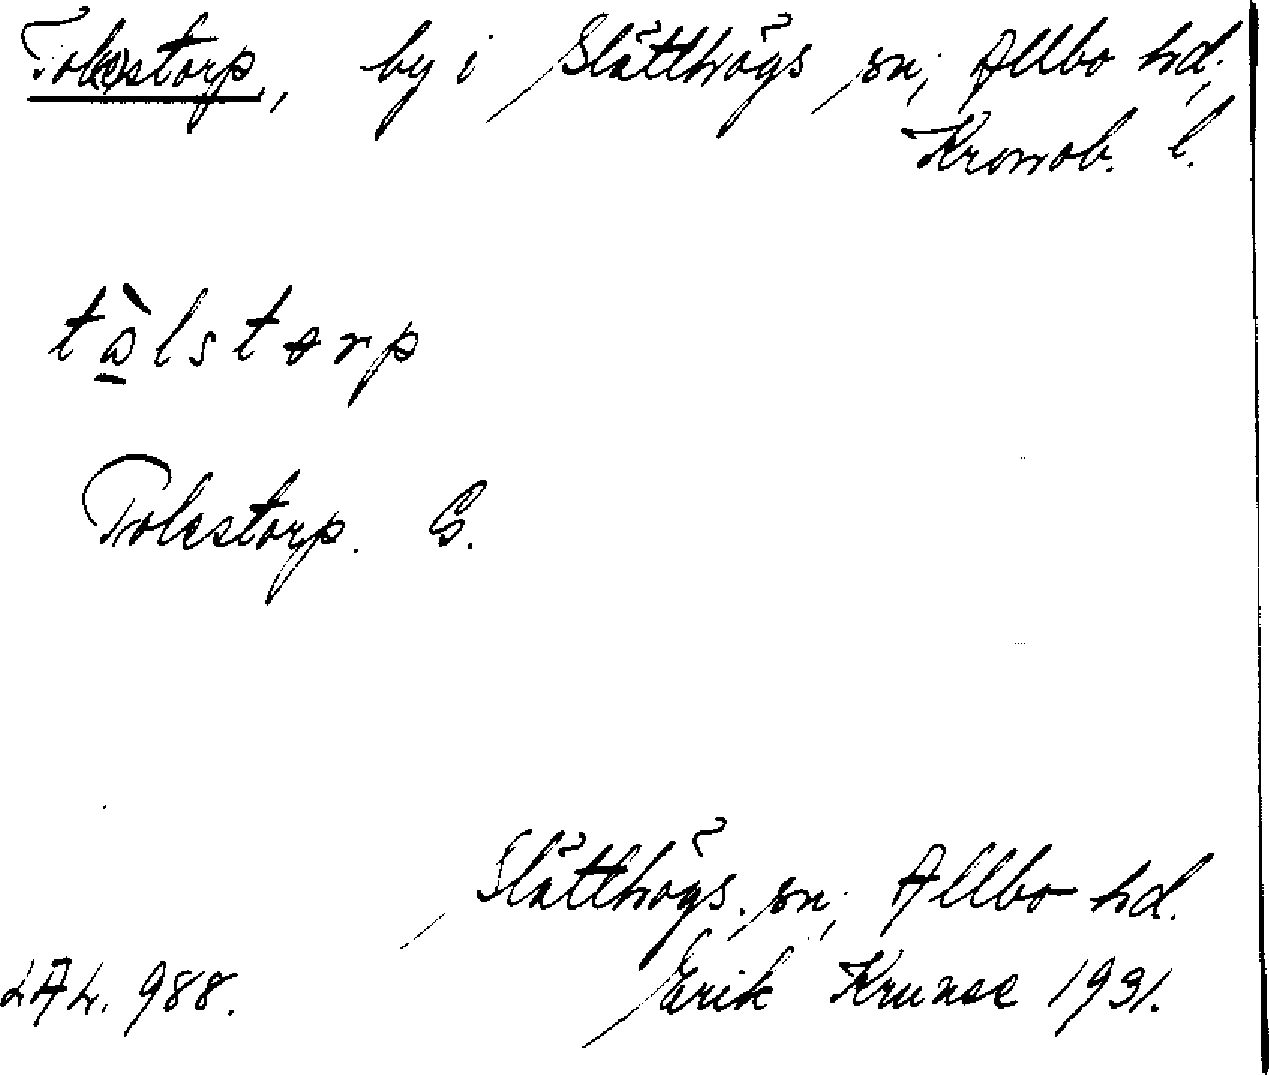 Tol(e)storp, by i Slätthögs sn, Allbo hd,
Kronob. l.
tò̱lstɵrp
Tolestorp. G.
Slätthögs. sn, Allbo hd.
LAL. 988.
Erik Krunee 1931.